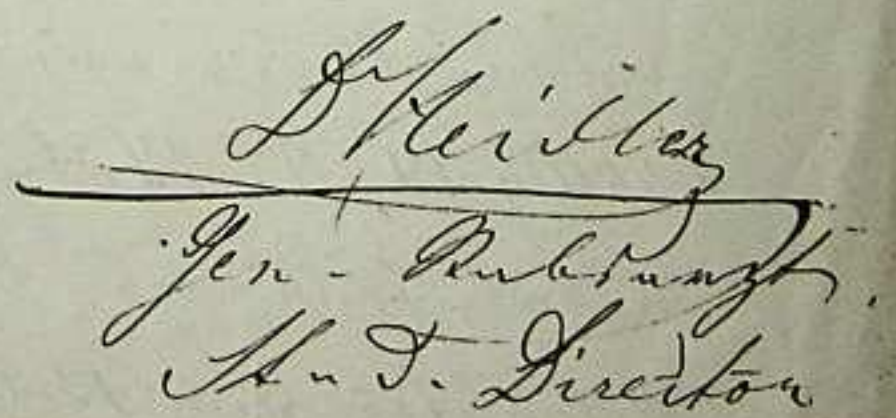 Dr Heidler
Gen. - Stabsarzt,
St. u. D. Director